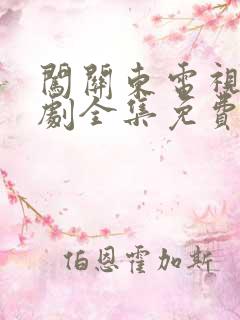 闖關東電視
劇全集免費
伯恩霍加斯